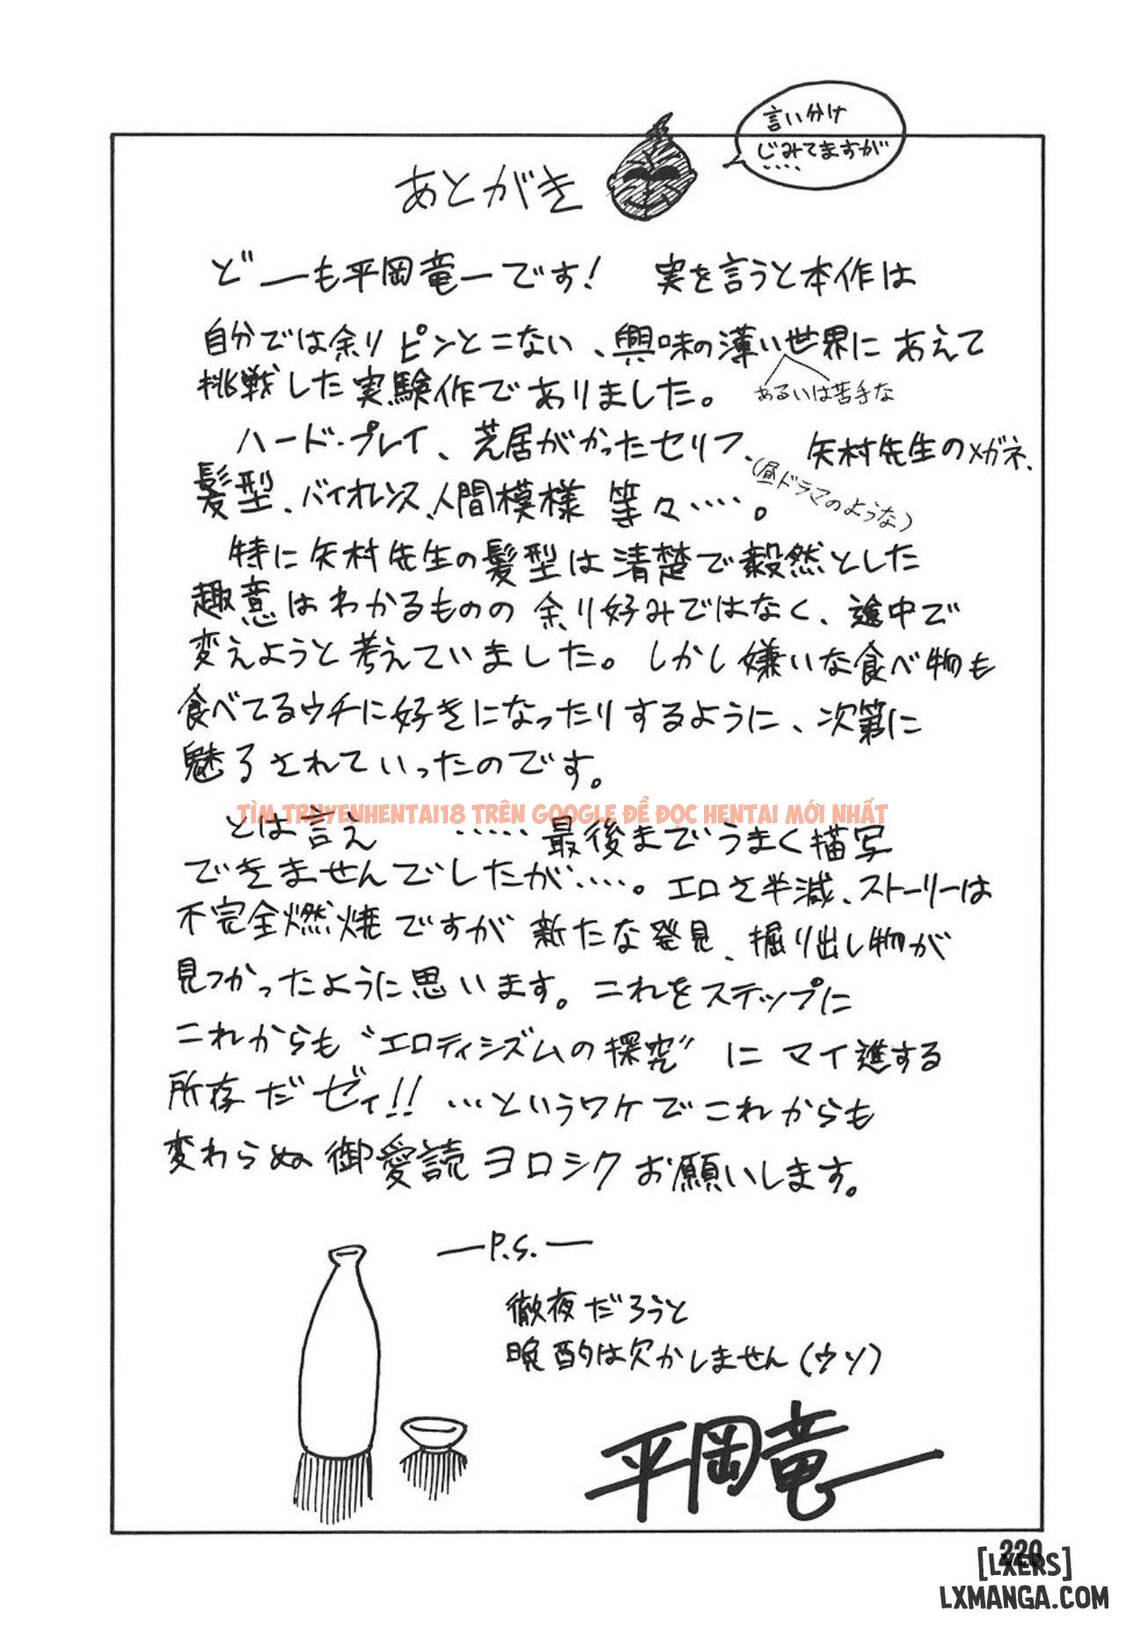 言い分け
じみてますが
‥‥
あとがき
どーも平岡竜一です! 実を言うと本作は
自分では余りピンとこない、興味の薄い世界にあえて
あるいは苦手な
挑戦した実験作でありました。
ハード・プレイ、芝居がかったセリフ、矢村先生のメガネ、
(昼ドラマのような)
髪型、バイオレンス、人間模様 等々‥‥。
特に矢村先生の髪型は清楚で毅然とした
趣意はわかるものの余り好みではなく、途中で
変えようと考えていました。しかし嫌いな食べ物も
食べてるウチに好きになったりするように、次第に
魅了されていったのです。
TÌM TRUYENHENTAI18 TRÊN GOOGLE ĐỂ ĐỌC HENTAI MỚI NHẤT
とは言え ‥‥‥最後までうまく描写
できませんでしたが‥‥。エロさ半減、ストーリーは
不完全燃焼ですが新たな発見、掘り出し物が
見つかったように思います。これをステップに
これからも“エロティシズムの探究”にマイ進する
所存だゼィ!! …というワケでこれからも
変わらぬ御愛読ヨロシクお願いします。
—P.S.—
徹夜だろうと
晩酌は欠かしません(ウソ)
平岡竜一
220
[LXERS]
LXMANGA.COM